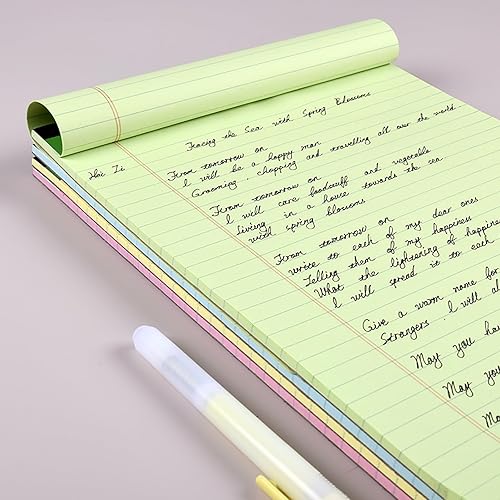 Facing the Sea with Spring Blossoms
Hai Zi
From tomorrow on
I will be a happy man
Grooming, chopping and travelling all over the world
From tomorrow on
I will care foodstuff and vegetable
Living in a house towards the sea
with spring blossoms
From tomorrow on
write to each of my dear ones
Telling them of my happiness
What the lightening of happine
I will spread it to each
Give a warm name for
Strangers, I will al
May you ha
May you
Ma